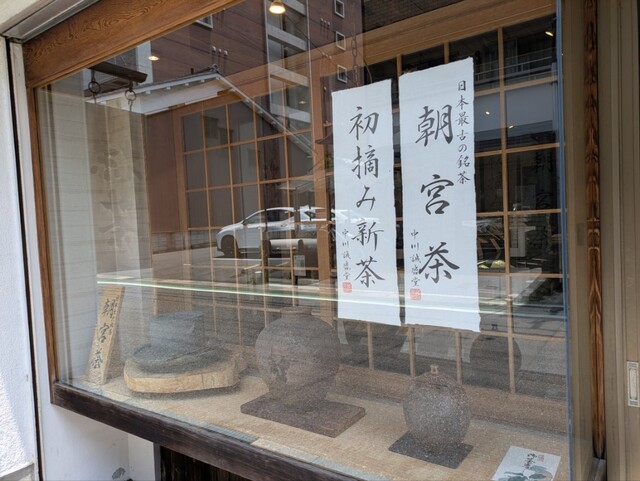 日本最古の銘茶
朝宮茶
中川誠盛堂
初摘み新茶
中川誠盛堂
朝宮茶